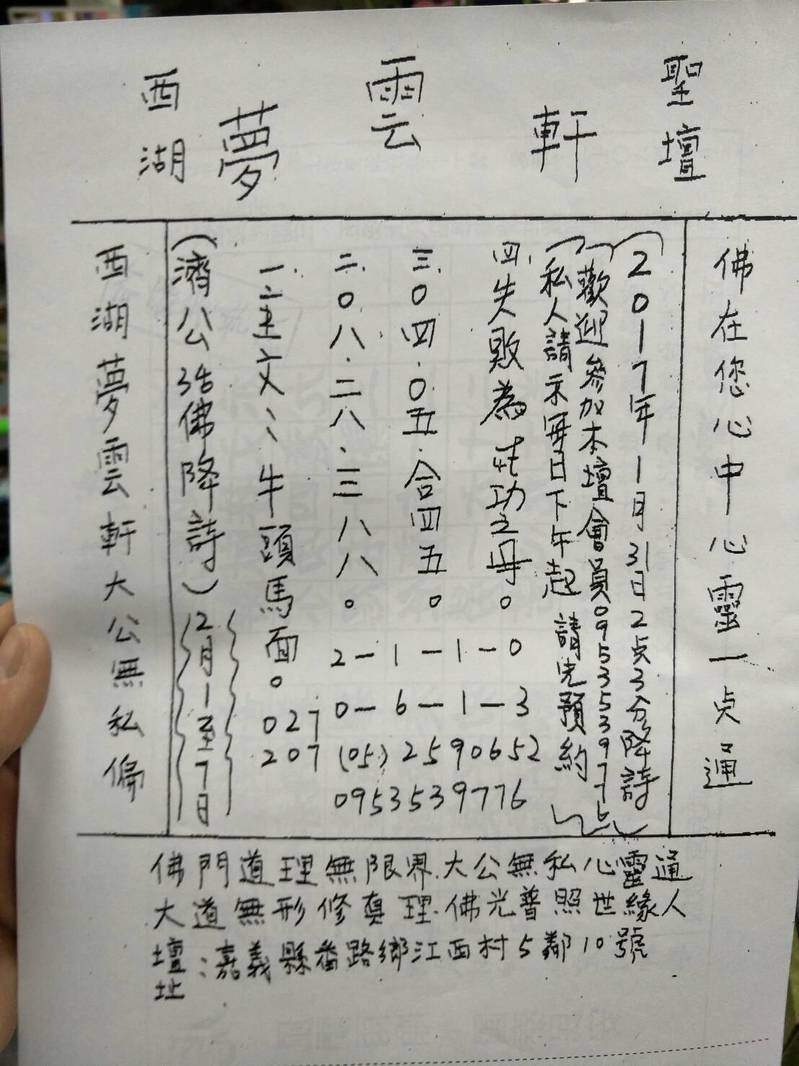 西湖 夢雲軒 聖壇
西湖夢雲軒大公無私偏
(濟公活佛降詩) 12月1至7日
一.主文:牛頭馬面。
二.0八.二八.三八八。
三.0四.0五.合四五。
四.失敗為成功之母。
2-1-1-0
027 0-6-1-3
207 (05) 2590652
0953539776
私人請示每日下午起 請先預約
歡迎參加本壇會員0953539776
(2017年1月31日2点3分降詩)
佛在您心中心靈一点通
佛門道理無限界.大公無私心靈通
大道無形修真理.佛光普照世緣人
壇址:嘉義縣番路鄉江西村5鄰10號